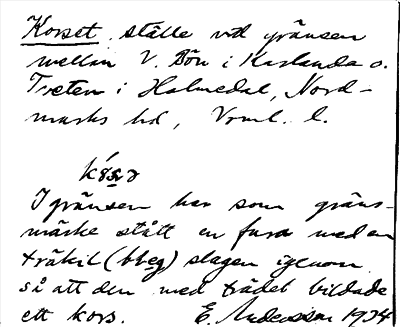 Korset, ställe vid gränsen
mellan V. Bön i Karlanda o.
Treten i Holmedal, Nord-
marks hd, Vrml. l.
I gränsen har som gräns-
märke stått en fura med en
träkil (bbeg) slagen igenom
så att den med trädet bildade
ett kors. E. Andersson 1934